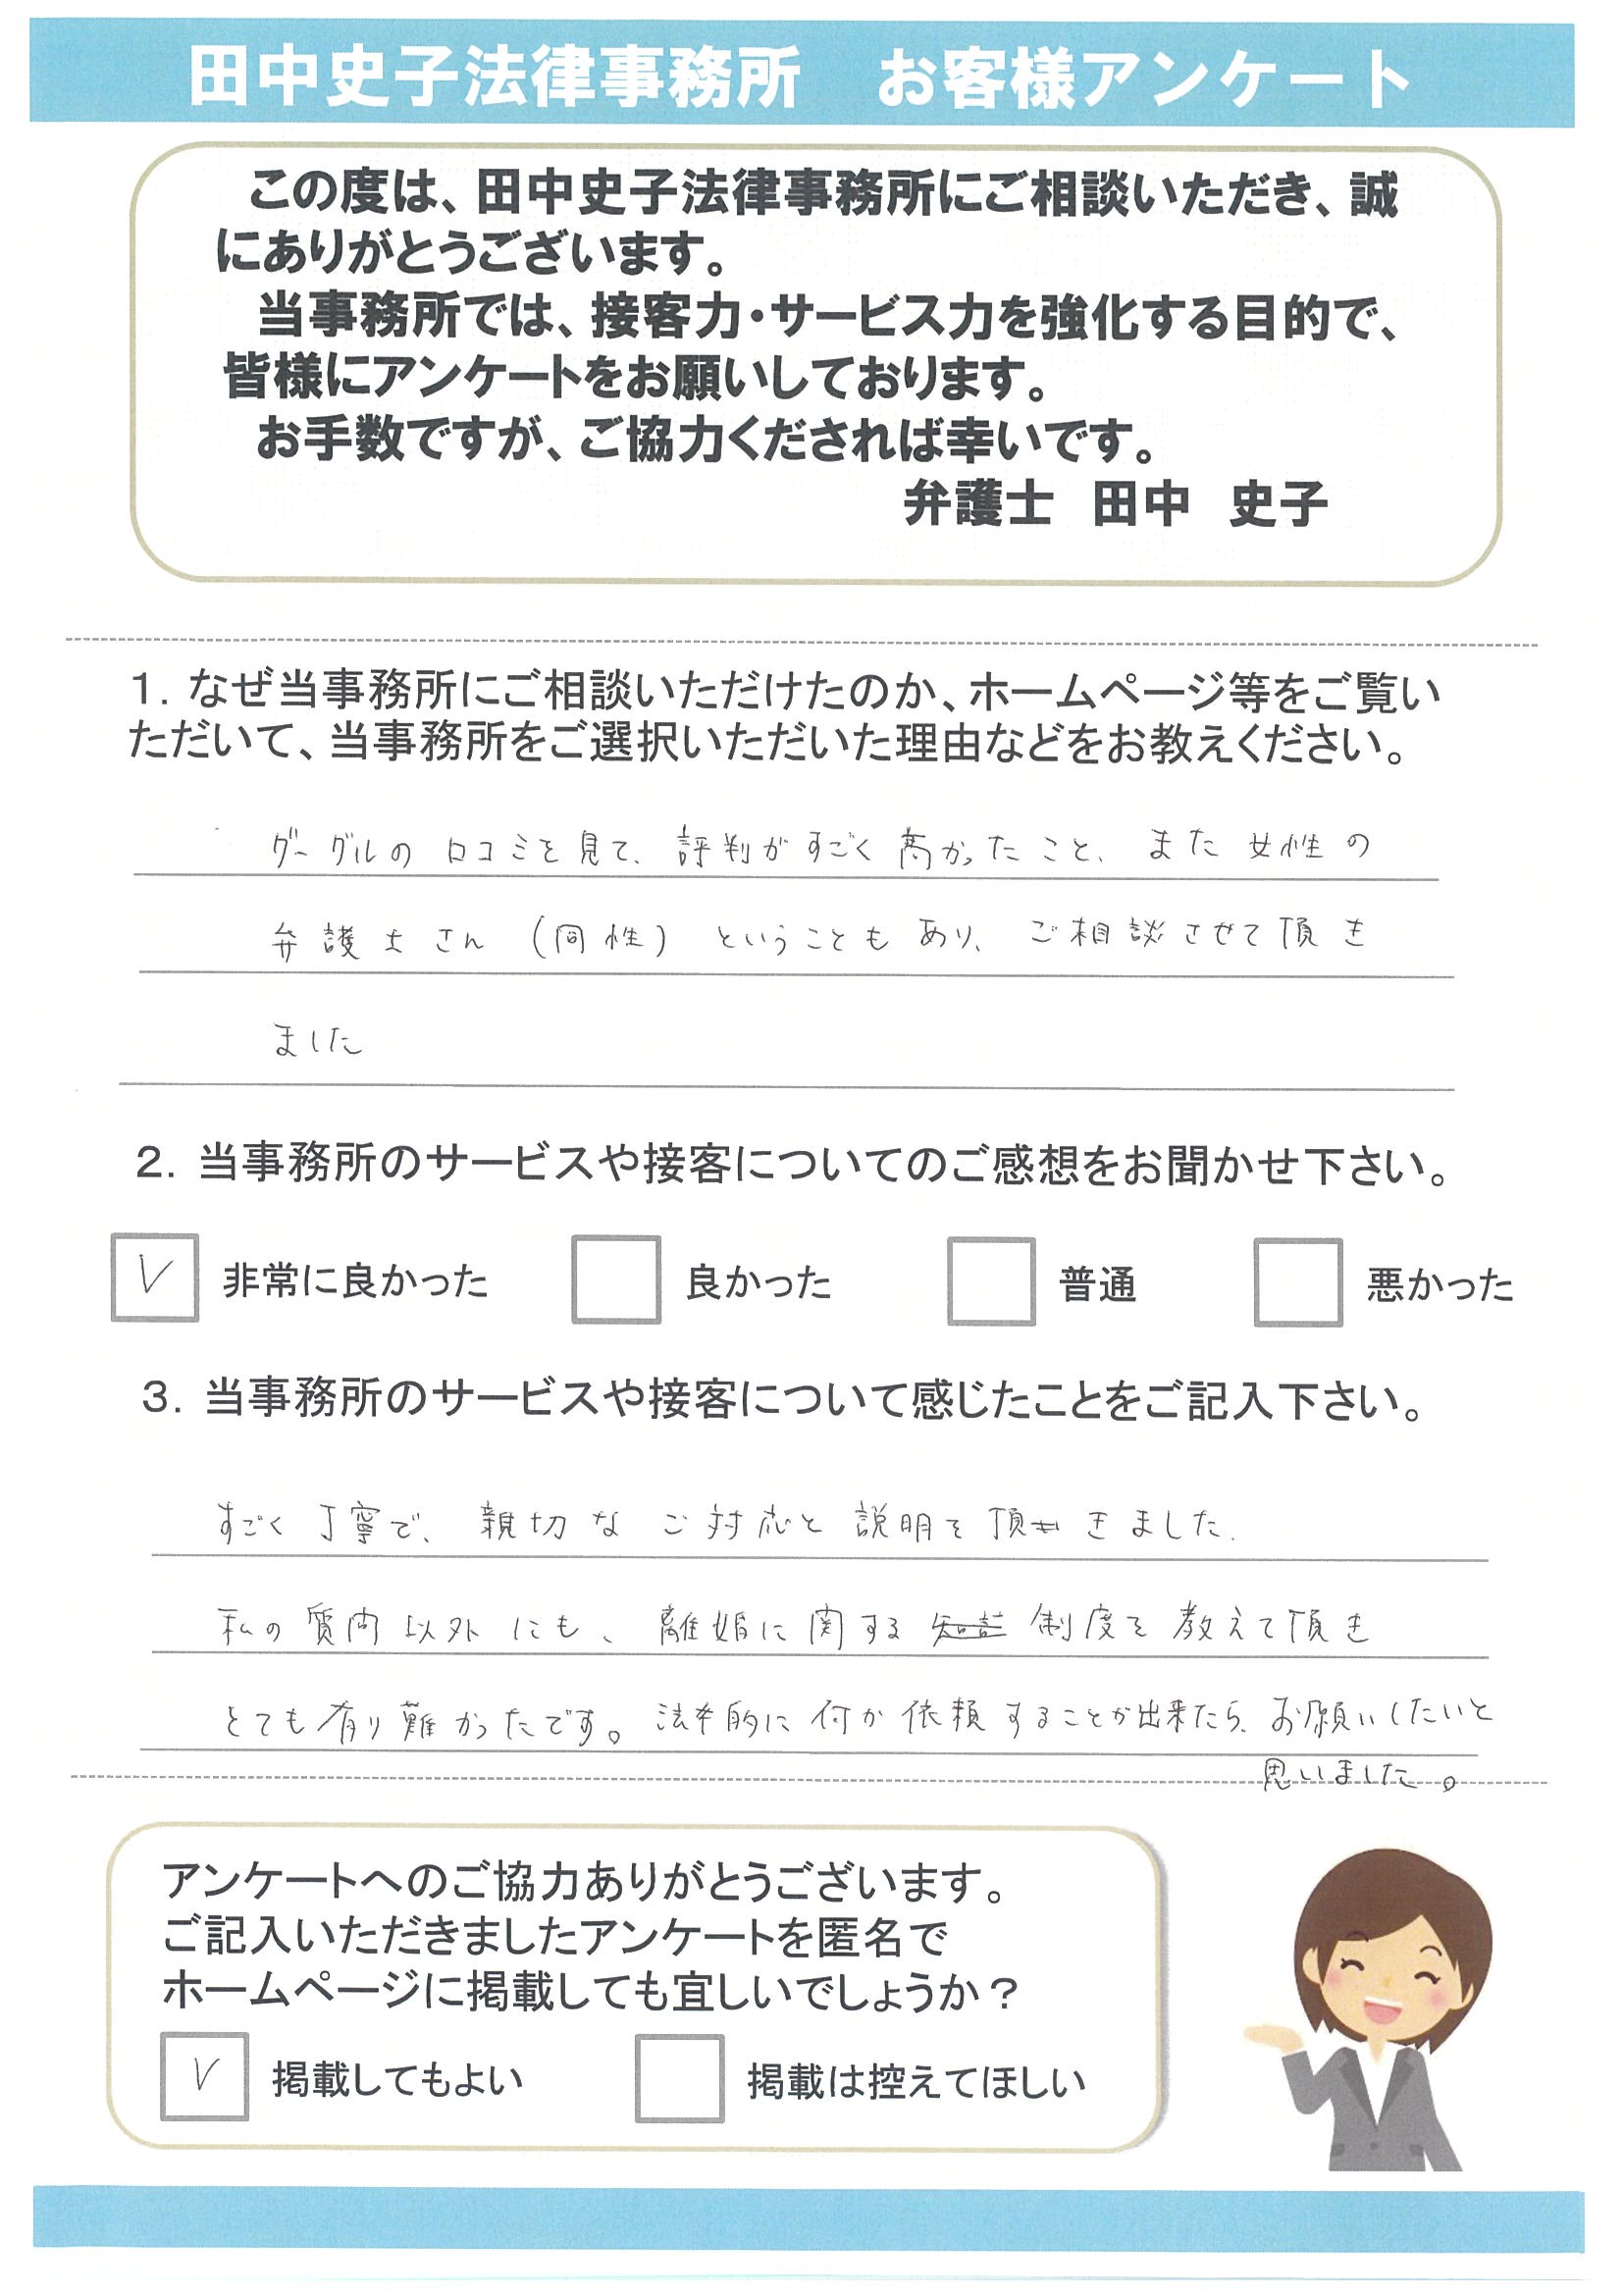 田中史子法律事務所　お客様アンケート
この度は、田中史子法律事務所にご相談いただき、誠
にありがとうございます。
当事務所では、接客力・サービス力を強化する目的で、
皆様にアンケートをお願いしております。
お手数ですが、ご協力くだされば幸いです。
弁護士　田中　史子
1. なぜ当事務所にご相談いただけたのか、ホームページ等をご覧い
ただいて、当事務所をご選択いただいた理由などをお教えください。
グーグルの口コミを見て、評判がすごく高かったこと、また女性の
弁護士さん（同性）ということもあり、ご相談させて頂き
ました
2. 当事務所のサービスや接客についてのご感想をお聞かせ下さい。
非常に良かった　良かった　普通　悪かった
3. 当事務所のサービスや接客について感じたことをご記入下さい。
すごく丁寧で、親切なご対応と説明を頂きました。
私の質問以外にも、離婚に関する制度を教えて頂き
とても有り難かったです。法的に何か依頼することが出来たら、お願いしたいと
思いました。
アンケートへのご協力ありがとうございます。
ご記入いただきましたアンケートを匿名で
ホームページに掲載しても宜しいでしょうか？
掲載してもよい　掲載は控えてほしい